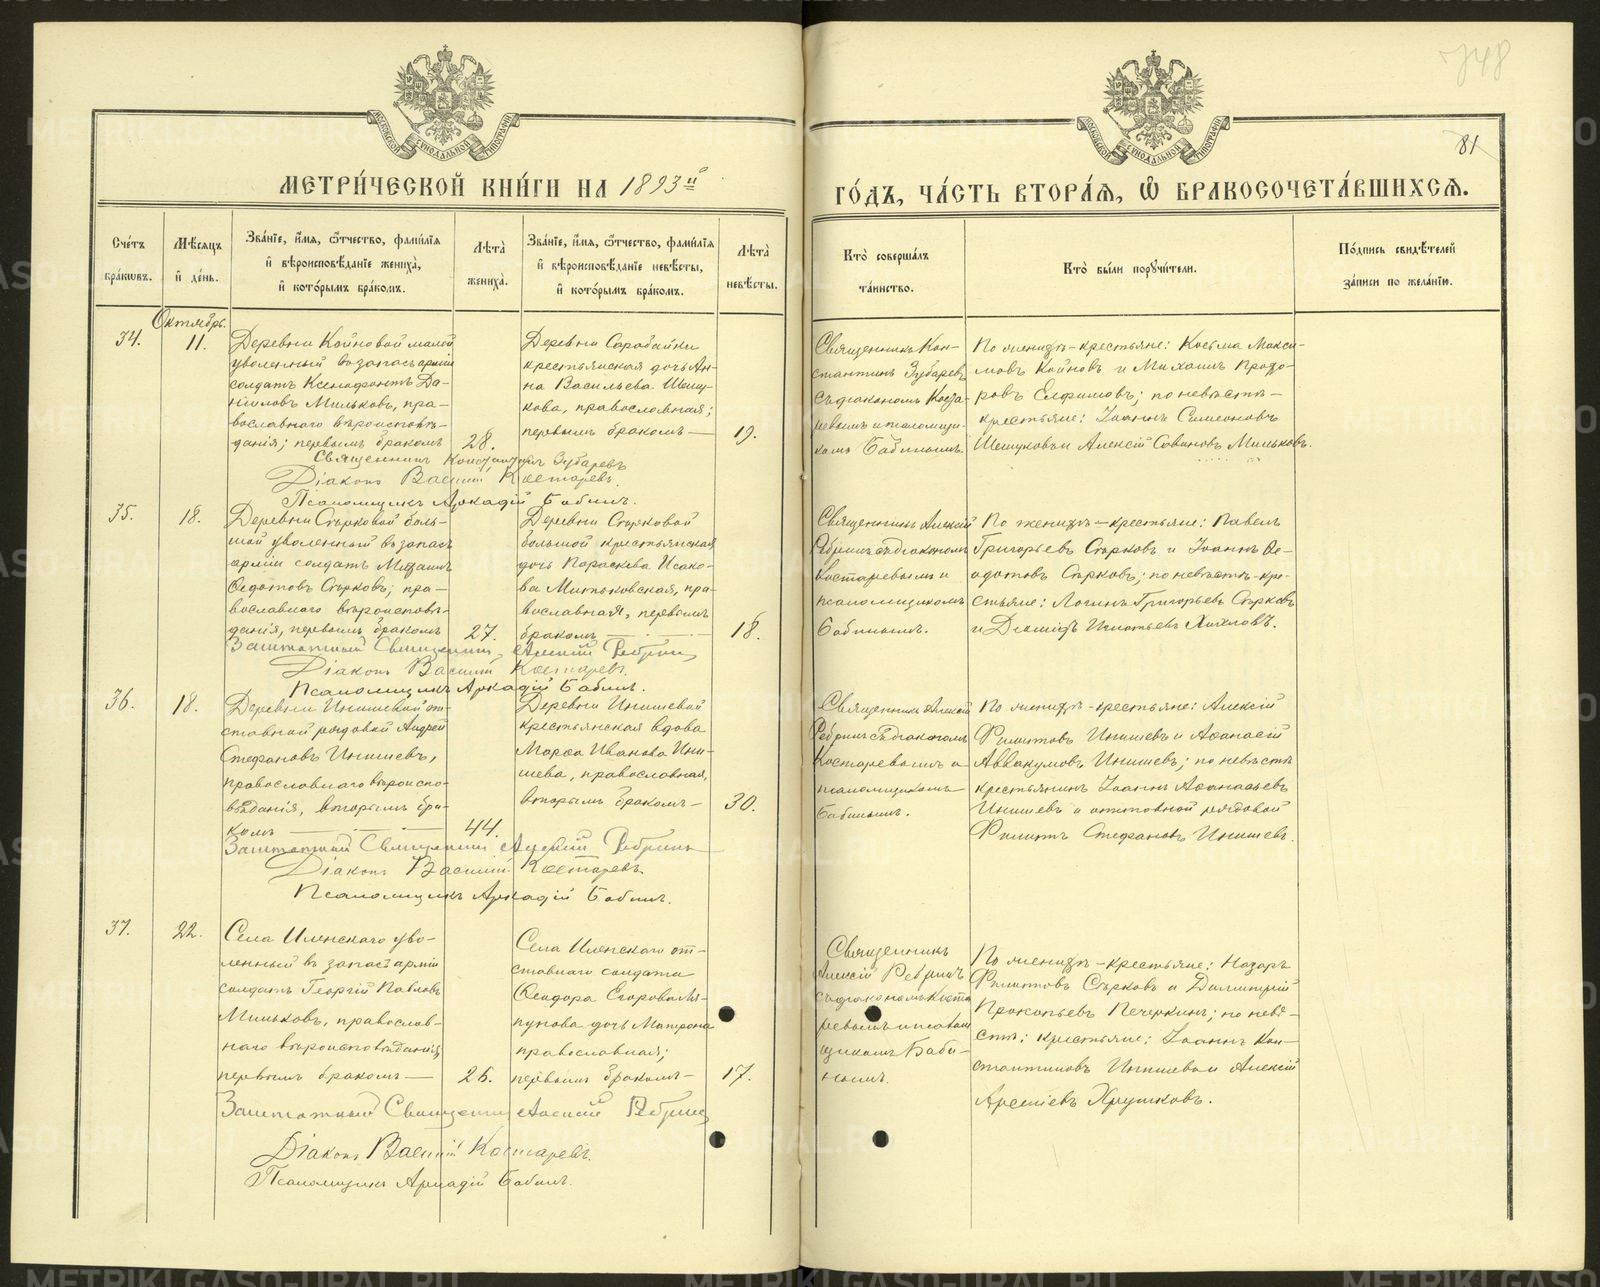 748
81
МОСКОВСКОЙ СѴНОДАЛЬНОЙ ТИПОГРАФІИ
МОСКОВСКОЙ СѴНОДАЛЬНОЙ ТИПОГРАФІИ
МЕТРИ́ЧЕСКОЙ КНИ́ГИ НА 1893й
ГО́ДЪ, ЧА́СТЬ ВТОРА́Ѧ, Ѡ҆ БРАКОСОЧЕТА́ВШИХСѦ.
Сче́тъ бра́кѡвъ.
Мѣ́сяцъ и҆ де́нь.
Зва́нїе, и҆́мѧ, ѻ҆́тчество, фами́лїѧ и҆ вѣроисповѣ́данїе жениха̀, и҆ кото́рымъ бра́комъ.
Лѣ́та жениха̀.
Зва́нїе, и҆́мѧ, ѻ҆́тчество, фами́лїѧ и҆ вѣроисповѣ́данїе невѣ́сты, и҆ кото́рымъ бра́комъ.
Лѣ́та невѣ́сты.
Кто̀ соверша́лъ та́инство.
Кто̀ бы́ли порꙋчи́тели.
По́дпись свидѣ́телей за́писи по жела́нїю.
Октябрь.
34.
11.
Деревни Койновой малой
уволенный въ запасъ арміи
солдатъ Ксенофонтъ Да-
ниловъ Мильковъ, пра-
вославнаго вѣроисповѣ-
данія; первымъ бракомъ
28.
Деревни Сарабайки
крестьянская дочь Ан-
на Васильева Шешу-
кова, православная;
первымъ бракомъ —
19.
Священникъ Кон-
стантинъ Зубаревъ
съ діакономъ Коста-
ревымъ и псаломщи-
комъ Бабинымъ.
По женихѣ - крестьяне: Косьма Макси-
мовъ Койновъ и Михаилъ Прохо-
ровъ Елфимовъ; по невѣстѣ -
крестьяне: Іоаннъ Симеоновъ
Шешуковъ и Алексій Савиновъ Мильковъ.
Священникъ Константинъ Зубаревъ
Діаконъ Василій Костаревъ.
Псаломщикъ Аркадій Бабинъ.
35.
18.
Деревни Сѣрковой боль-
шой уволенный въ запасъ
арміи солдатъ Михаилъ
Ѳедотовъ Сѣрковъ; пра-
вославнаго вѣроисповѣ-
данія, первымъ бракомъ
27.
Деревни Сѣрковой
большой крестьянская
дочь Параскева Исако-
ва Митьковская, пра-
вославная, первымъ
бракомъ —
18.
Священникъ Алексій
Ребринъ съ діакономъ
Костаревымъ и
псаломщикомъ
Бабинымъ.
По женихѣ - крестьяне: Павелъ
Григорьевъ Сѣрковъ и Іоаннъ Ѳе-
одотовъ Сѣрковъ; по невѣстѣ - кре-
стьяне: Логинъ Григорьевъ Сѣрковъ
и Діомидъ Игнатьевъ Ляховъ.
Заштатный Священникъ Алексій Ребринъ
Діаконъ Василій Костаревъ.
Псаломщикъ Аркадій Бабинъ.
36.
18.
Деревни Инишевой от-
ставной рядовой Андрей
Стефановъ Инишевъ,
православнаго вѣроиспо-
вѣданія, вторымъ бра-
комъ —
44.
Деревни Инишевой
крестьянская вдова
Марѳа Иванова Ини-
шева, православная,
вторымъ бракомъ -
30.
Священникъ Алексій
Ребринъ съ діакономъ
Костаревымъ и
псаломщикомъ
Бабинымъ.
По женихѣ - крестьяне: Алексій
Филиповъ Инишевъ и Аѳанасій
Аввакумовъ Инишевъ; по невѣстѣ
крестьянинъ Іоаннъ Аѳанасьевъ
Инишевъ и отставной рядовой
Филипъ Стефановъ Инишевъ.
Заштатный Священникъ Алексій Ребринъ
Діаконъ Василій Костаревъ.
Псаломщикъ Аркадій Бабинъ.
37.
22.
Села Иленскаго уво-
ленный въ запасъ арміи
солдатъ Георгій Павловъ
Мильковъ, православ-
наго вѣроисповѣданія,
первымъ бракомъ —
26.
Села Иленскаго от-
ставнаго солдата
Ѳеодора Егорова Ля-
пунова дочь Матрона
православная;
первымъ бракомъ -
17.
Священникъ
Алексій Ребринъ
съ діакономъ Коста
ревымъ и псалом
щикомъ Баби-
нымъ.
По женихѣ - крестьяне: Назаръ
Филиповъ Сѣрковъ и Димитрій
Прокопьевъ Печеркинъ; по невѣ-
стѣ: крестьяне: Іоаннъ Кон-
стантиновъ Инишевъ и Алексій
Арсеніевъ Хрушковъ.
Заштатный Священникъ Алексій Ребринъ
Діаконъ Василій Костаревъ.
Псаломщикъ Аркадій Бабинъ.
METRIKI.GASO-URAL.RU